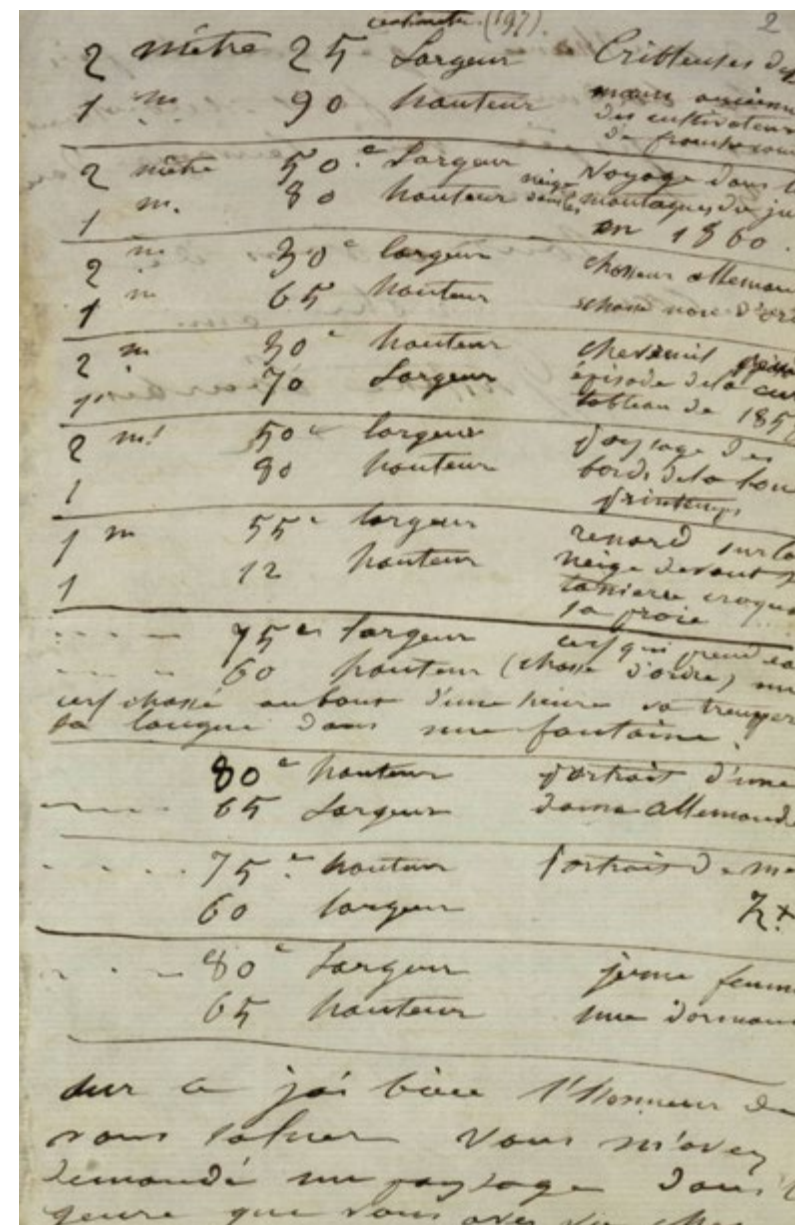 centimètre (197). 2
2 mètre 25 Largeur Cribleuses de
1 m 90 hauteur mœurs ancienn
des cultivateurs
de franche com
2 mètre 50 c Largeur Voyage dans l
1 m. 80 hauteur neige dans les montagnes du ju
en 1860.
2 m 30 c largeur chasseur alleman
1 m 65 hauteur chasse noire d'or
2 m 30 c hauteur chevreuil
1 70 Largeur épisode de la
tableau de 185
2 m! 50 c largeur paysage des
1 80 hauteur bords de la lou
printemps
1 m 55 c largeur renard sur la
1 12 hauteur neige devant s
tanière croqua
sa proie
75 c largeur cerf qui prend
60 hauteur (chasse d'ordre) un
cerf chassé au bout d'une heure va tremper
sa langue dans une fontaine.
80 c hauteur portrait d'une
65 Largeur dame allemande
75 c hauteur Portrait de
60 largeur
80 c Largeur jeune femm
65 hauteur nue dorman
sur ce j'ai bien l'honneur de
vous saluer Vous m'avez
demandé un paysage dans l
genre que vous avez